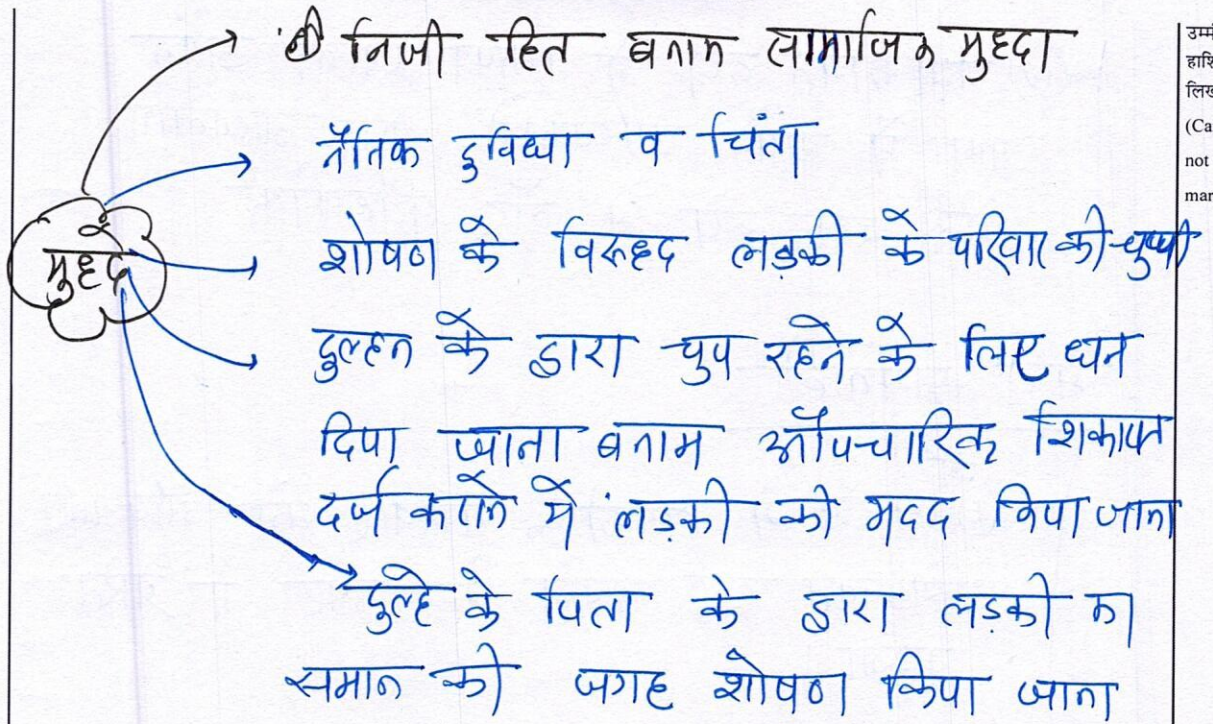 निजी हित बनाम सामाजिक मुद्दा
नैतिक दुविधा व चिंता
मुद्दे
शोषण के विरुद्ध लड़की के परिवार की चुप्पी
दुल्हन के द्वारा चुप रहने के लिए धन
दिया जाना बनाम औपचारिक शिकायत
दर्ज कराने में लड़की की मदद किया जाना
दुल्हे के पिता के द्वारा लड़की का
समान की जगह शोषण किया जाना
उम्मी
हाशि
लिख
(Ca
not
mar